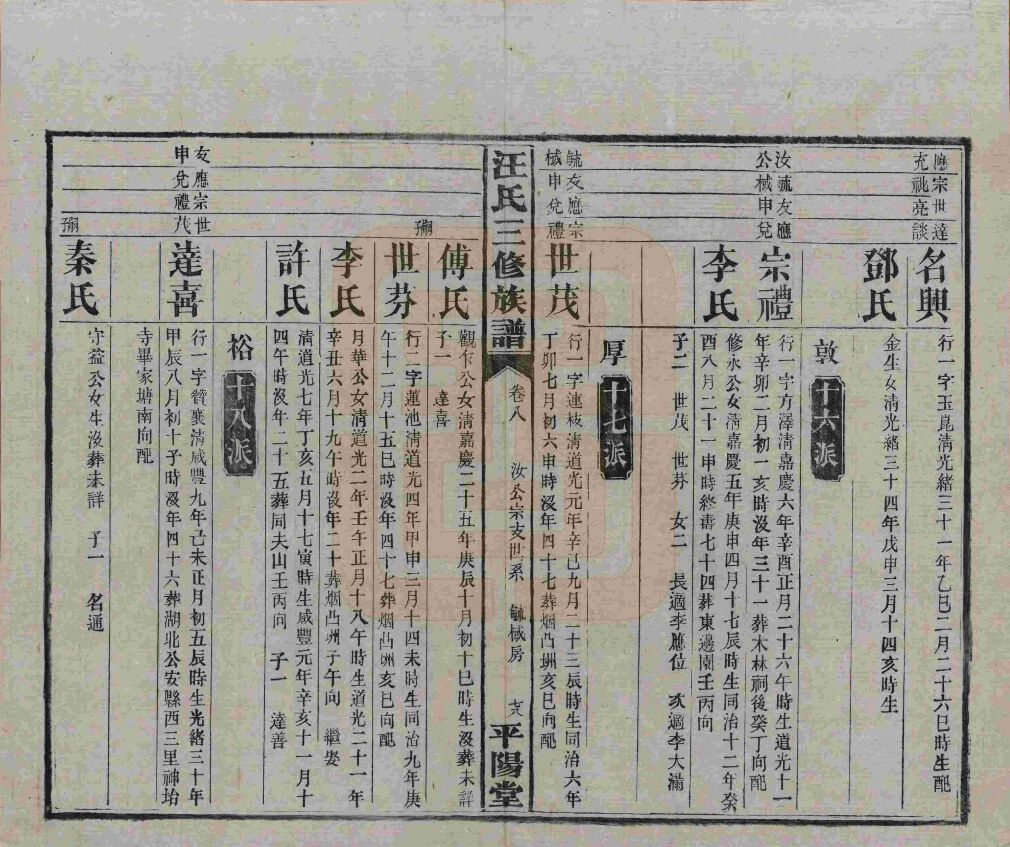 應宗世達
充祧亮談
名興
行一字玉崑清光緒三十一年乙巳二月二十六巳時生配
鄧氏
金生女清光緒三十四年戊申三月十四亥時生
敦
十六派
汝毓友應
公棫申兌
宗禮
行一字方澤清嘉慶六年辛酉正月二十六午時生道光十一
年辛卯二月初一亥時沒年三十一葬木林祠後癸丁向配
李氏
修永公女清嘉慶五年庚申四月十七辰時生同治十二年癸
酉八月二十一申時終壽七十四葬東邊園壬丙向
子二 世茂 世芬 女二 長適李應位 次適李大滿
厚
十七派
毓友應宗
棫申兌禮
世茂
行一字連枝清道光元年辛巳九月二十三辰時生同治六年
丁卯七月初六申時沒年四十七葬烟凸坳亥巳向配
汪氏三修族譜
卷八
汝公宗支世系
毓棫房
平陽堂
傅氏
觀作公女清嘉慶二十五年庚辰十月初十巳時生沒葬未詳
子一 達喜
世芬
行二字蓮池清道光四年甲申三月十四未時生同治九年庚
午十二月十五巳時沒年四十七葬烟凸坳亥巳向配
李氏
月華公女清道光二年壬午正月十八午時生道光二十一年
辛丑六月十九午時沒年二十葬烟凸坳子午向 繼娶
許氏
清道光七年丁亥五月十七寅時生咸豐元年辛亥十一月十
四午時沒年二十五葬同夫山壬丙向 子一 達善
裕
十八派
友應宗世
申兌禮茂
達喜
行一字贊襄清咸豐九年己未正月初五辰時生光緒三十年
甲辰八月初十子時沒年四十六葬湖北公安縣西三里神垱
寺畢家塘南向配
秦氏
守益公女生沒葬未詳 子一 名通